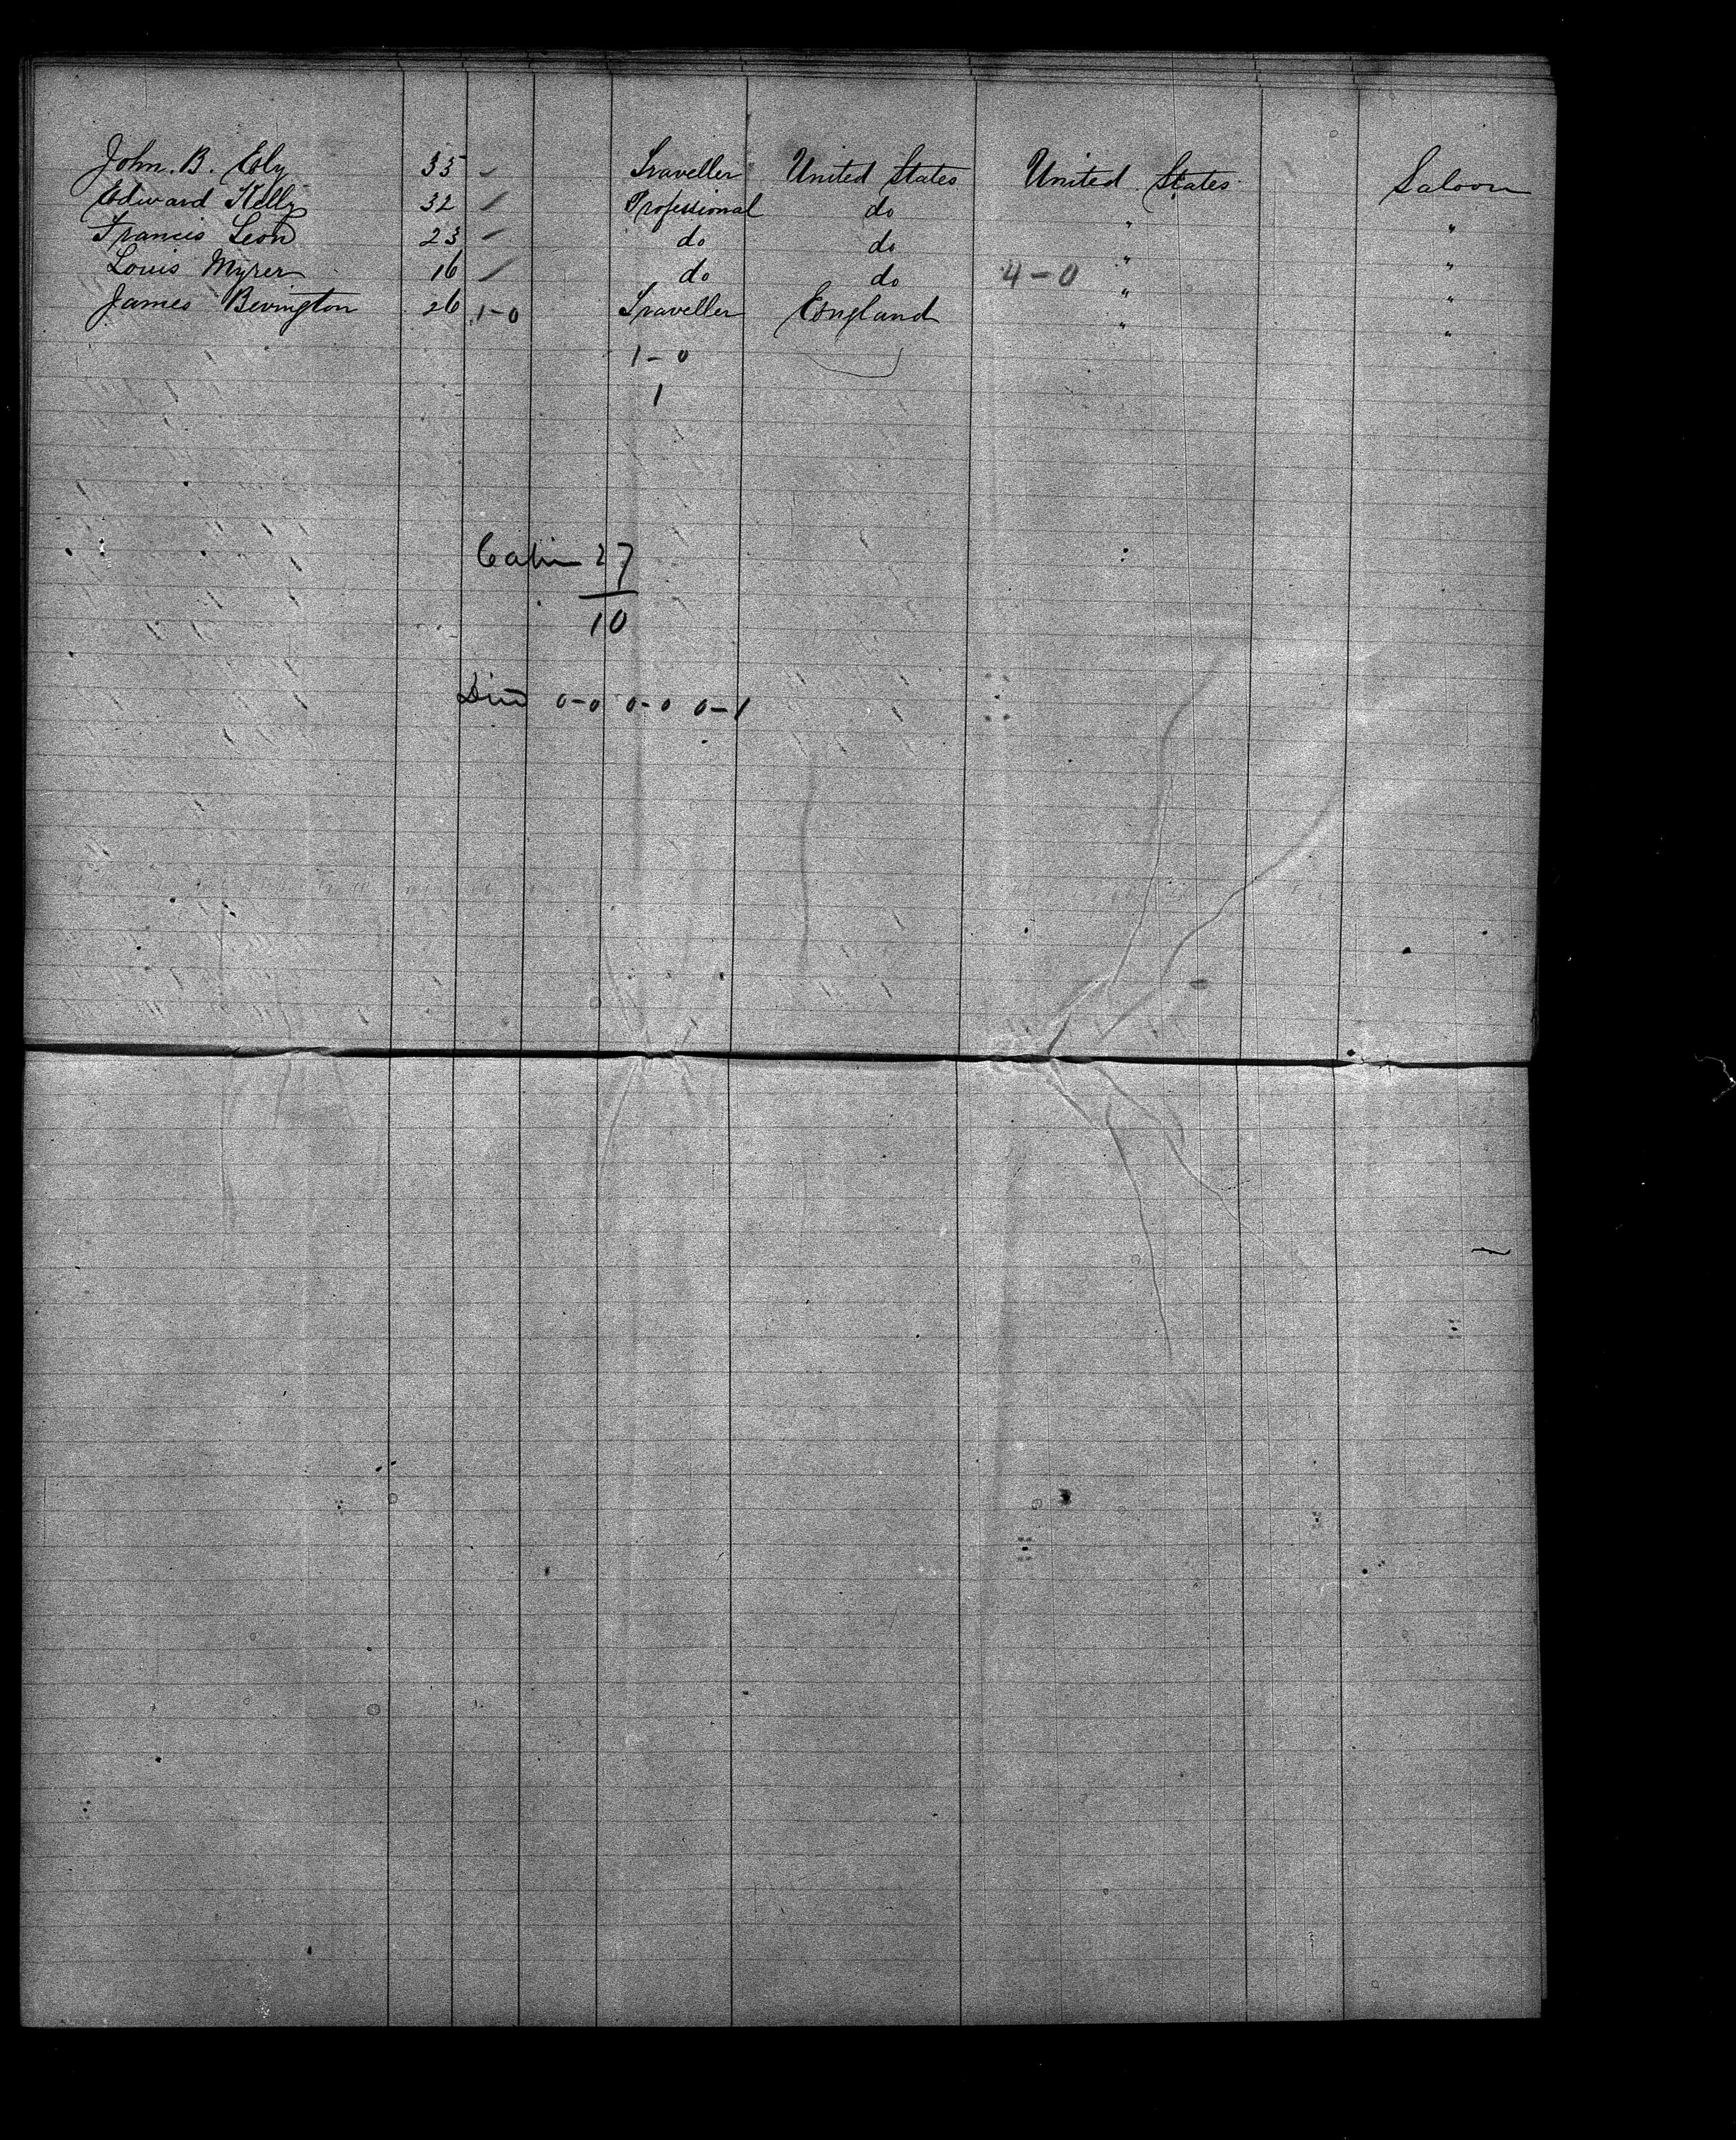 John. B. Ely 35 - Traveller United States United States Saloon
Edward Kelly 32 / Professional do " "
Francis Leon 23 - do do " "
Louis Myrer 16 / do do 4-0 " "
James Bevington 26 1-0 Traveller England " "
1-0
1
Cabin 27
10
Died 0-0 0-0 0-1